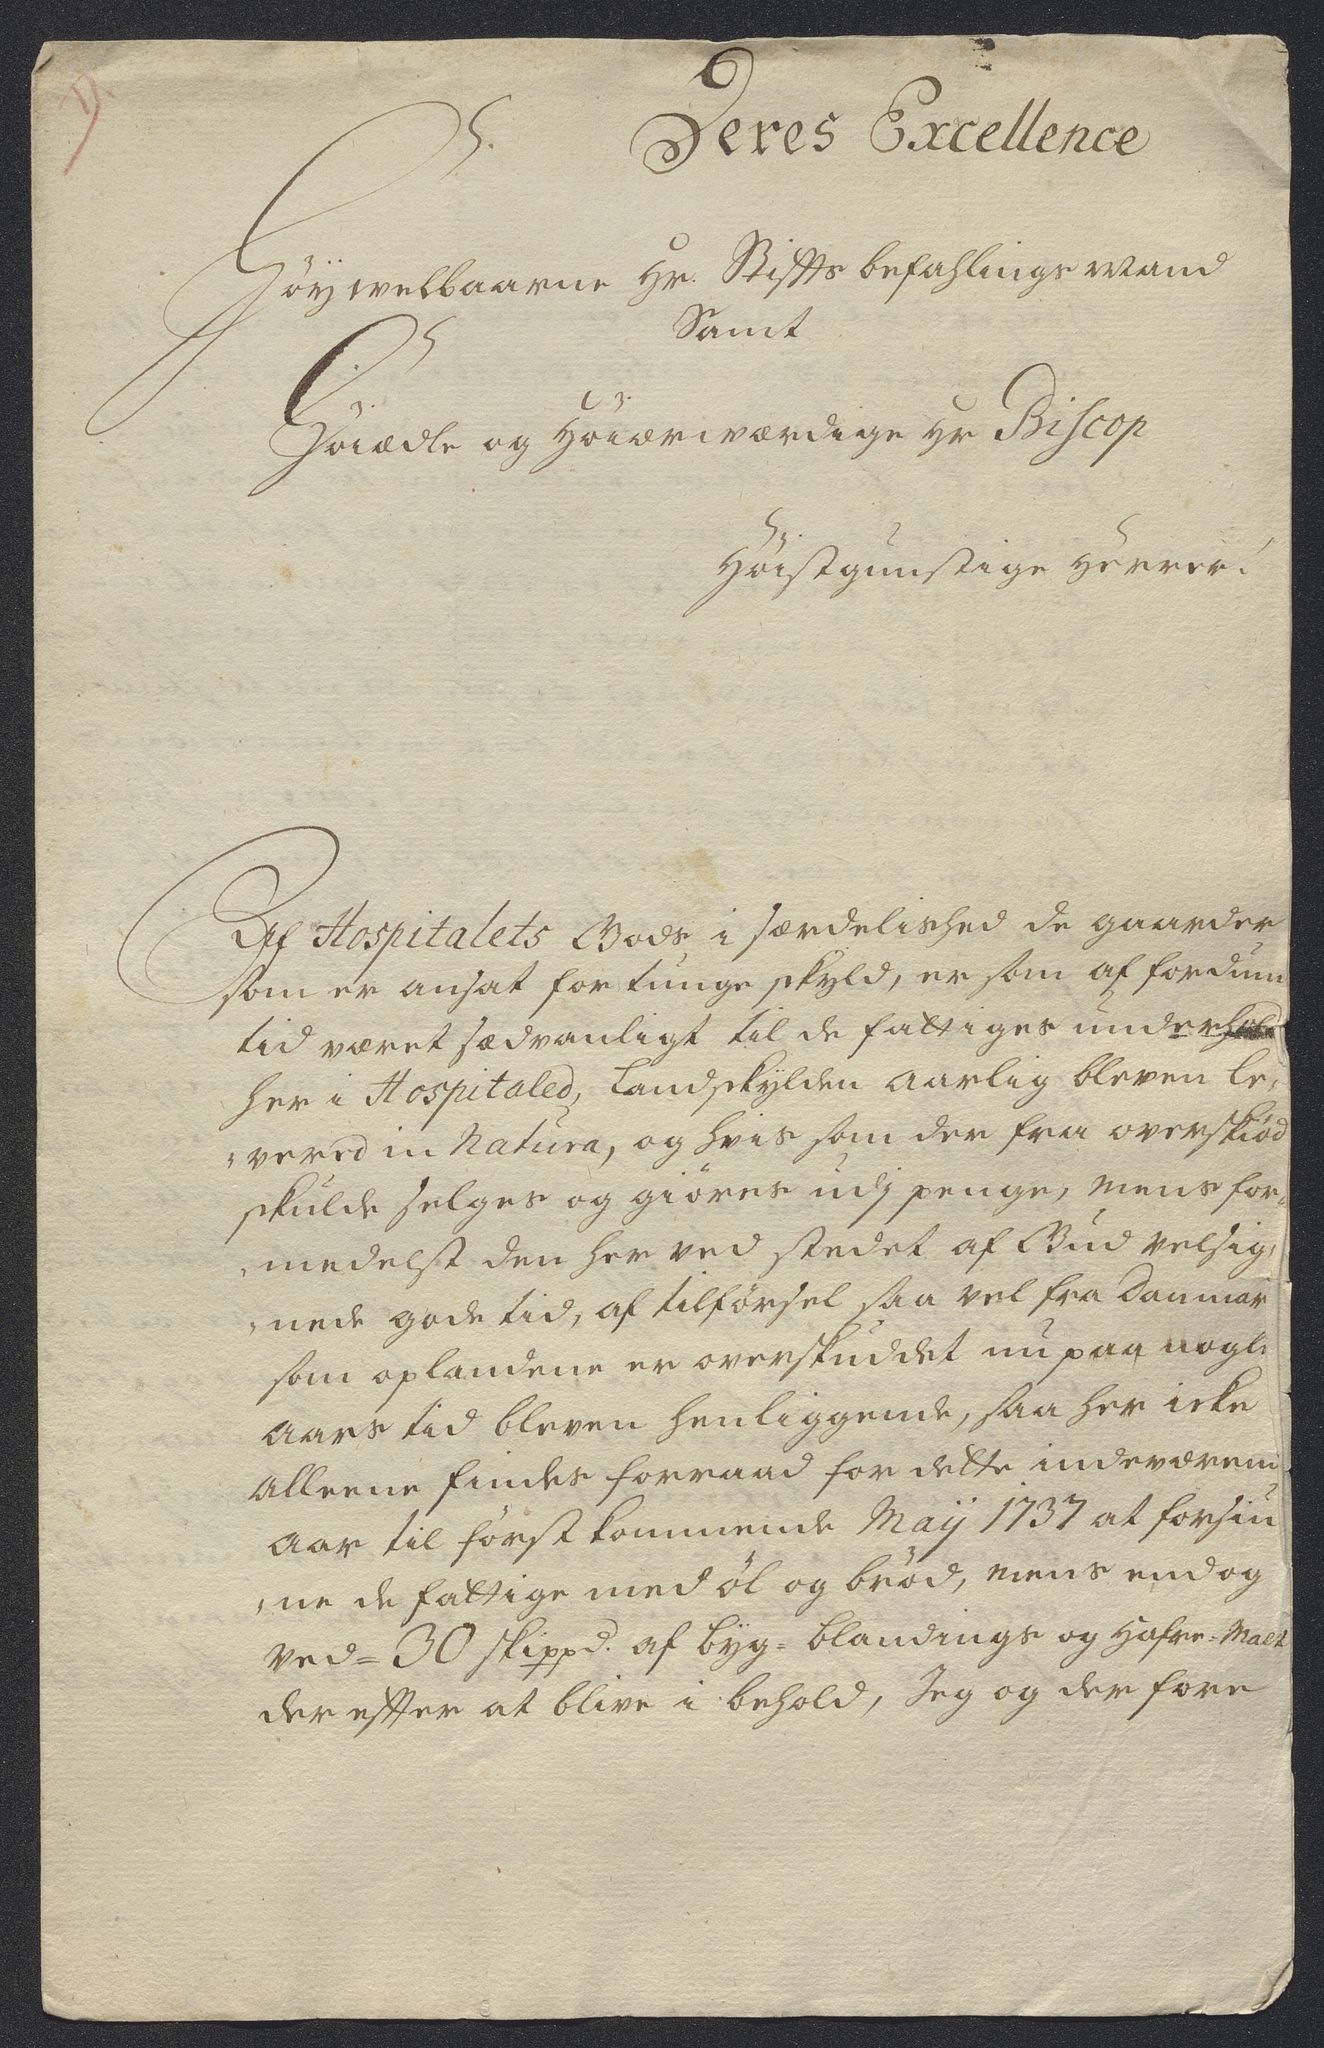 Deres Excellence
Høÿwelbaarne Hr. Stiftsbefahlings Mand
Samt
Høiædle og Høiærwærdige Hr Biscop
Høistgunstige Herrer!
Af Hospitalets Gods i særdelished de gaarder
som er ansat for tunge skyld, er som af fordum
tid været sædvanligt til de fattiges underhold
her i Hospitaled, Landskylden aarlig bleven le,
,vered in Natura, og hvis som der fra overskiød
skulde selges og giøres udj penge, mens for,
,medelst den her ved stedet af Gud velsig,
,nede gode tid, af tilførsel saa vel fra Danmar
som oplandene er overskuddet nu paa nogle
aars tid bleven henliggende, saa her icke
alleene findes forraad for dette indeværend
aar til først kommende Maij 1737 at forsiu
,ne de fattige med øl og brød, mens endog
ved = 30 skippd. af byg = blandings og Hafre = Malt
der efter at blive i behold, Jeg og der fore